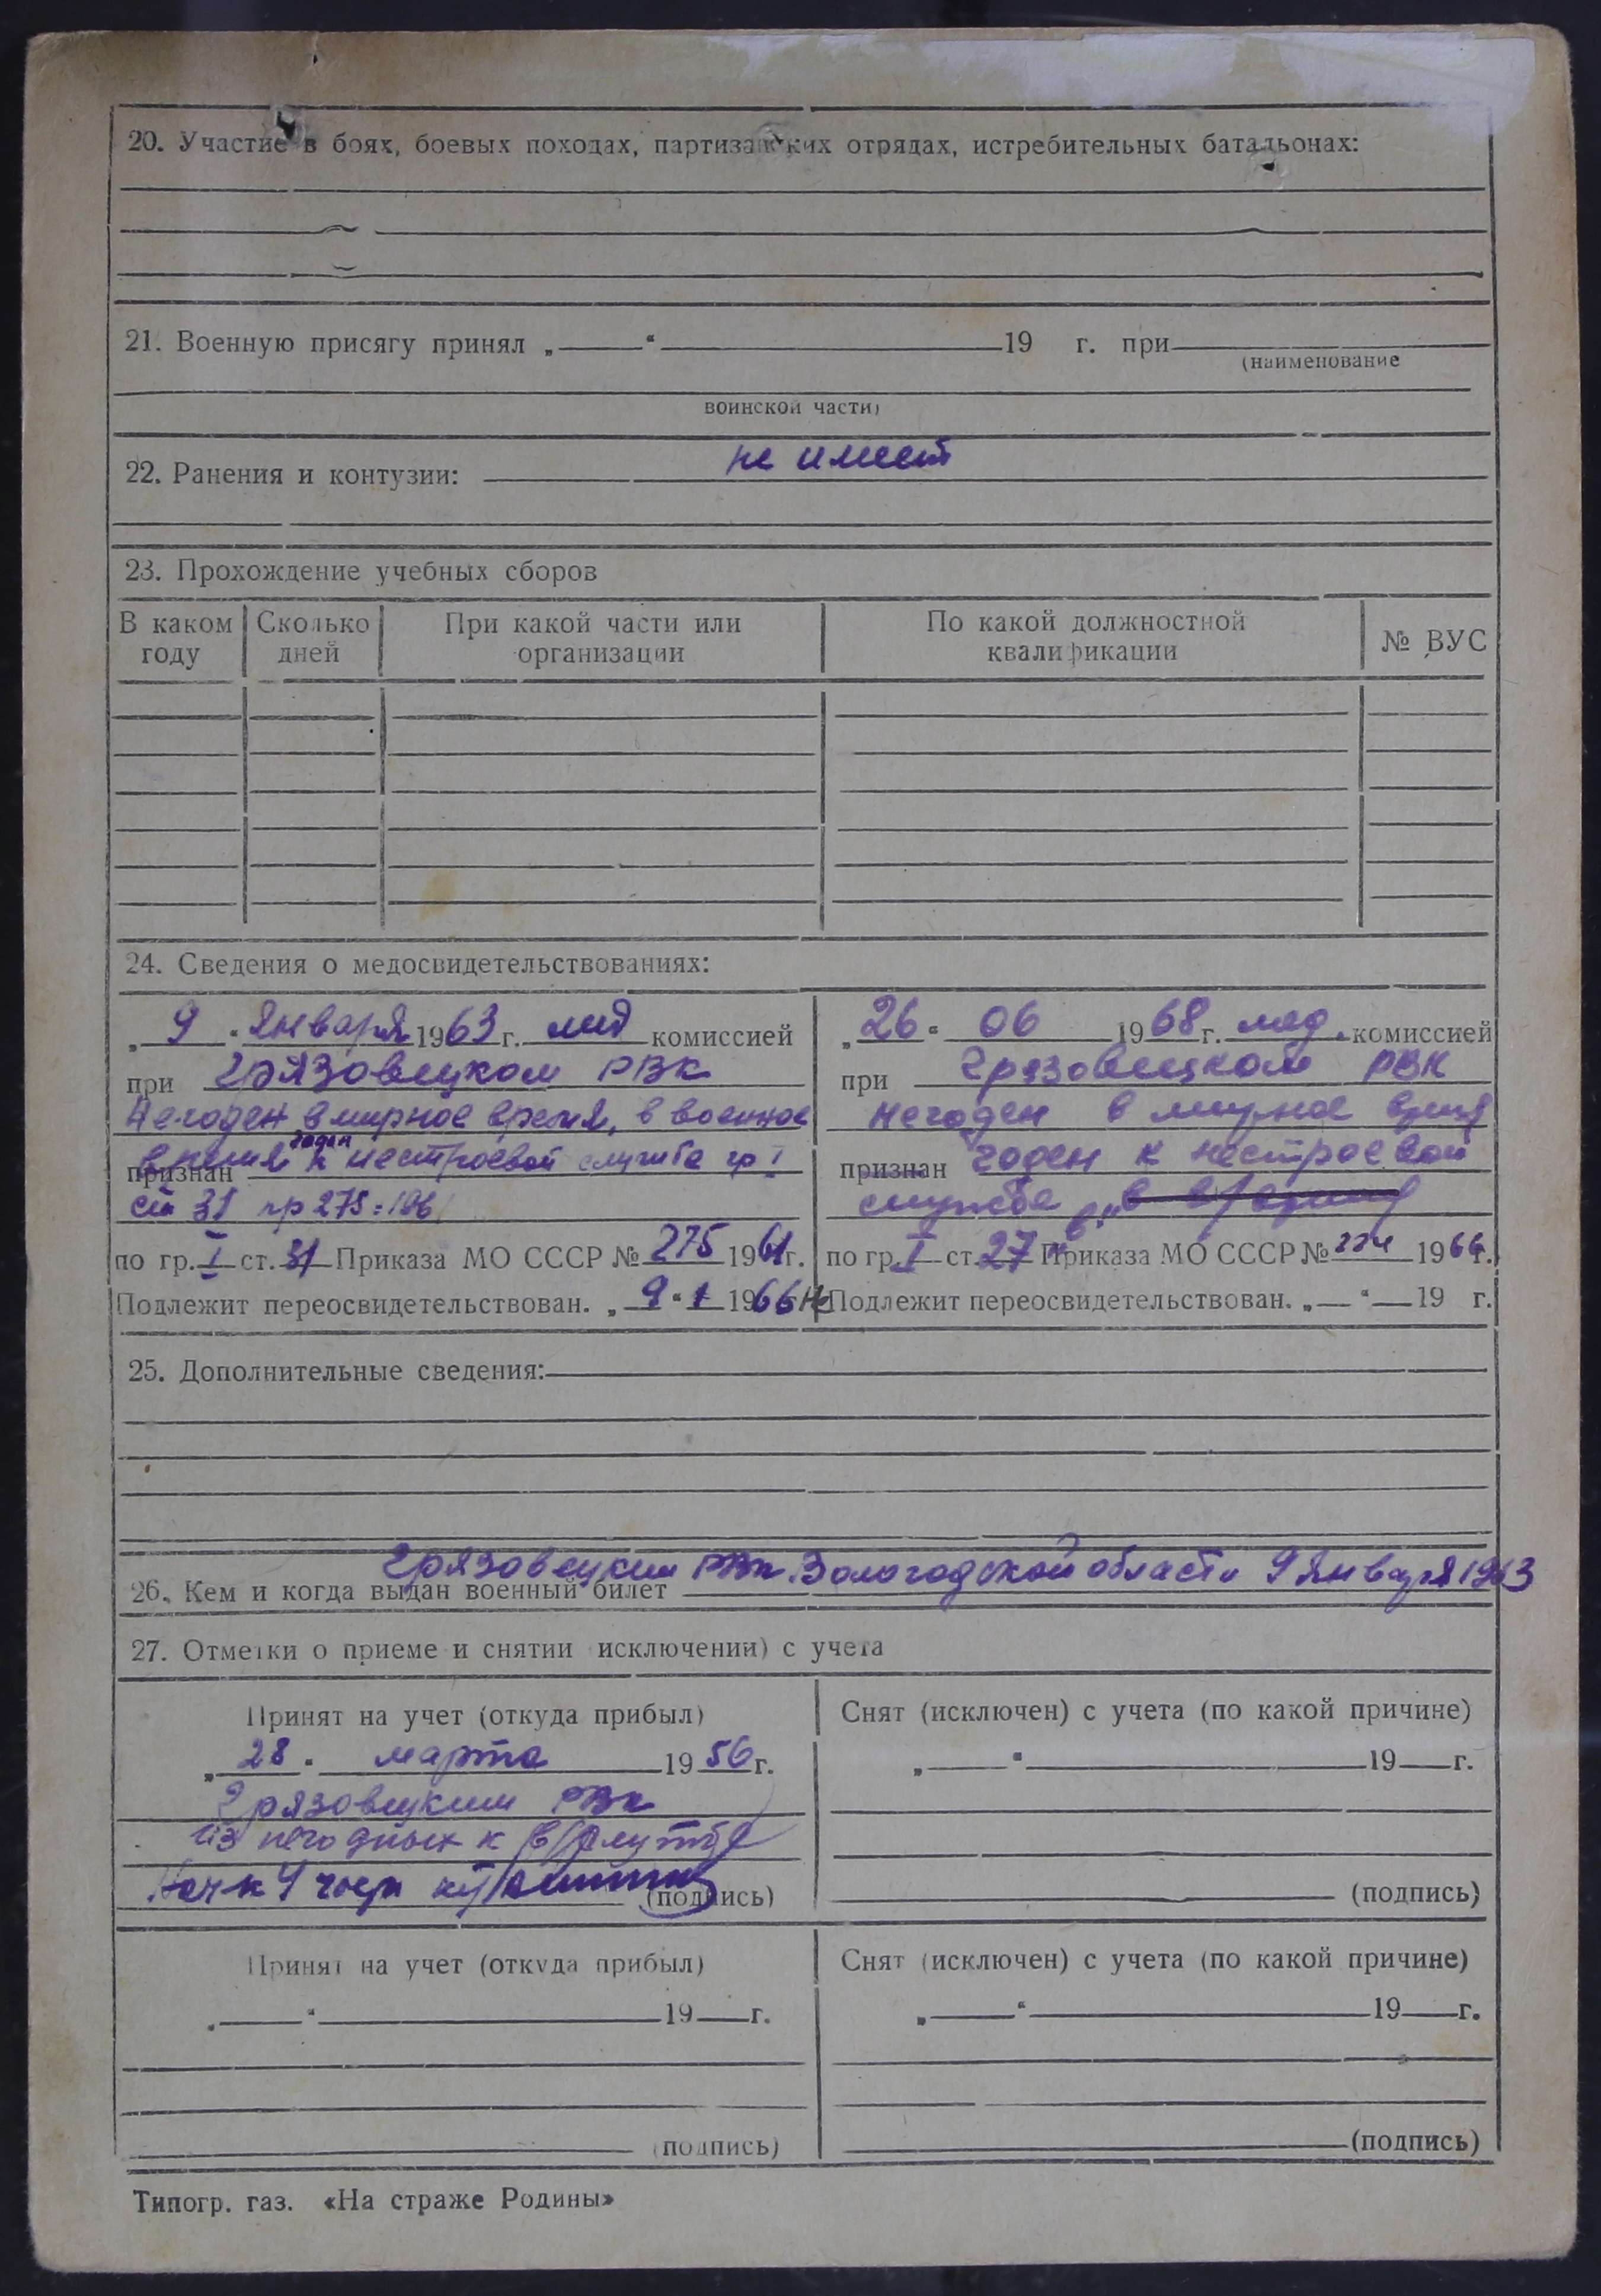 20. Участие в боях, боевых походах, партизанских отрядах, истребительных батальонах:
21. Военную присягу принял „ “ 19 г. при
(наименование
воинской части)
не имеет
22. Ранения и контузии:
23. Прохождение учебных сборов
В каком году Сколько дней При какой части или организации По какой должностной квалификации № ВУС
24. Сведения о медосвидетельствованиях:
„ 9 “ Января 1963 г. мед комиссией
при Грязовецком РВК
Негоден в мирное время, в военное
годен
время к нестроевой службе гр I
признан
ст 31 пр 275=196
по гр. I ст. 31 Приказа МО СССР № 275 1961 г.
Подлежит переосвидетельствован. „ 9 “ 1 1966
„ 26 “ 06 1968 г. мед. комиссией
при Грязовецком РВК
негоден в мирное время
признан годен к нестроевой
службе
по гр. I ст. 27 Приказа МО СССР № 1966 г.
Не Подлежит переосвидетельствован. „ “ 19 г.
25. Дополнительные сведения:
Грязовецким РВК Вологодской области 9 Января 1963
26. Кем и когда выдан военный билет
27. Отметки о приеме и снятии исключении) с учета
Принят на учет (откуда прибыл)
„ 28 “ марта 1956 г.
Грязовецким РВК
из негодных к в/службе
(подпись)
Снят (исключен) с учета (по какой причине)
„ “ 19 г.
(подпись)
Принят на учет (откуда прибыл)
„ “ 19 г.
(подпись)
Снят (исключен) с учета (по какой причине)
„ “ 19 г.
(подпись)
Типогр. газ. «На страже Родины»